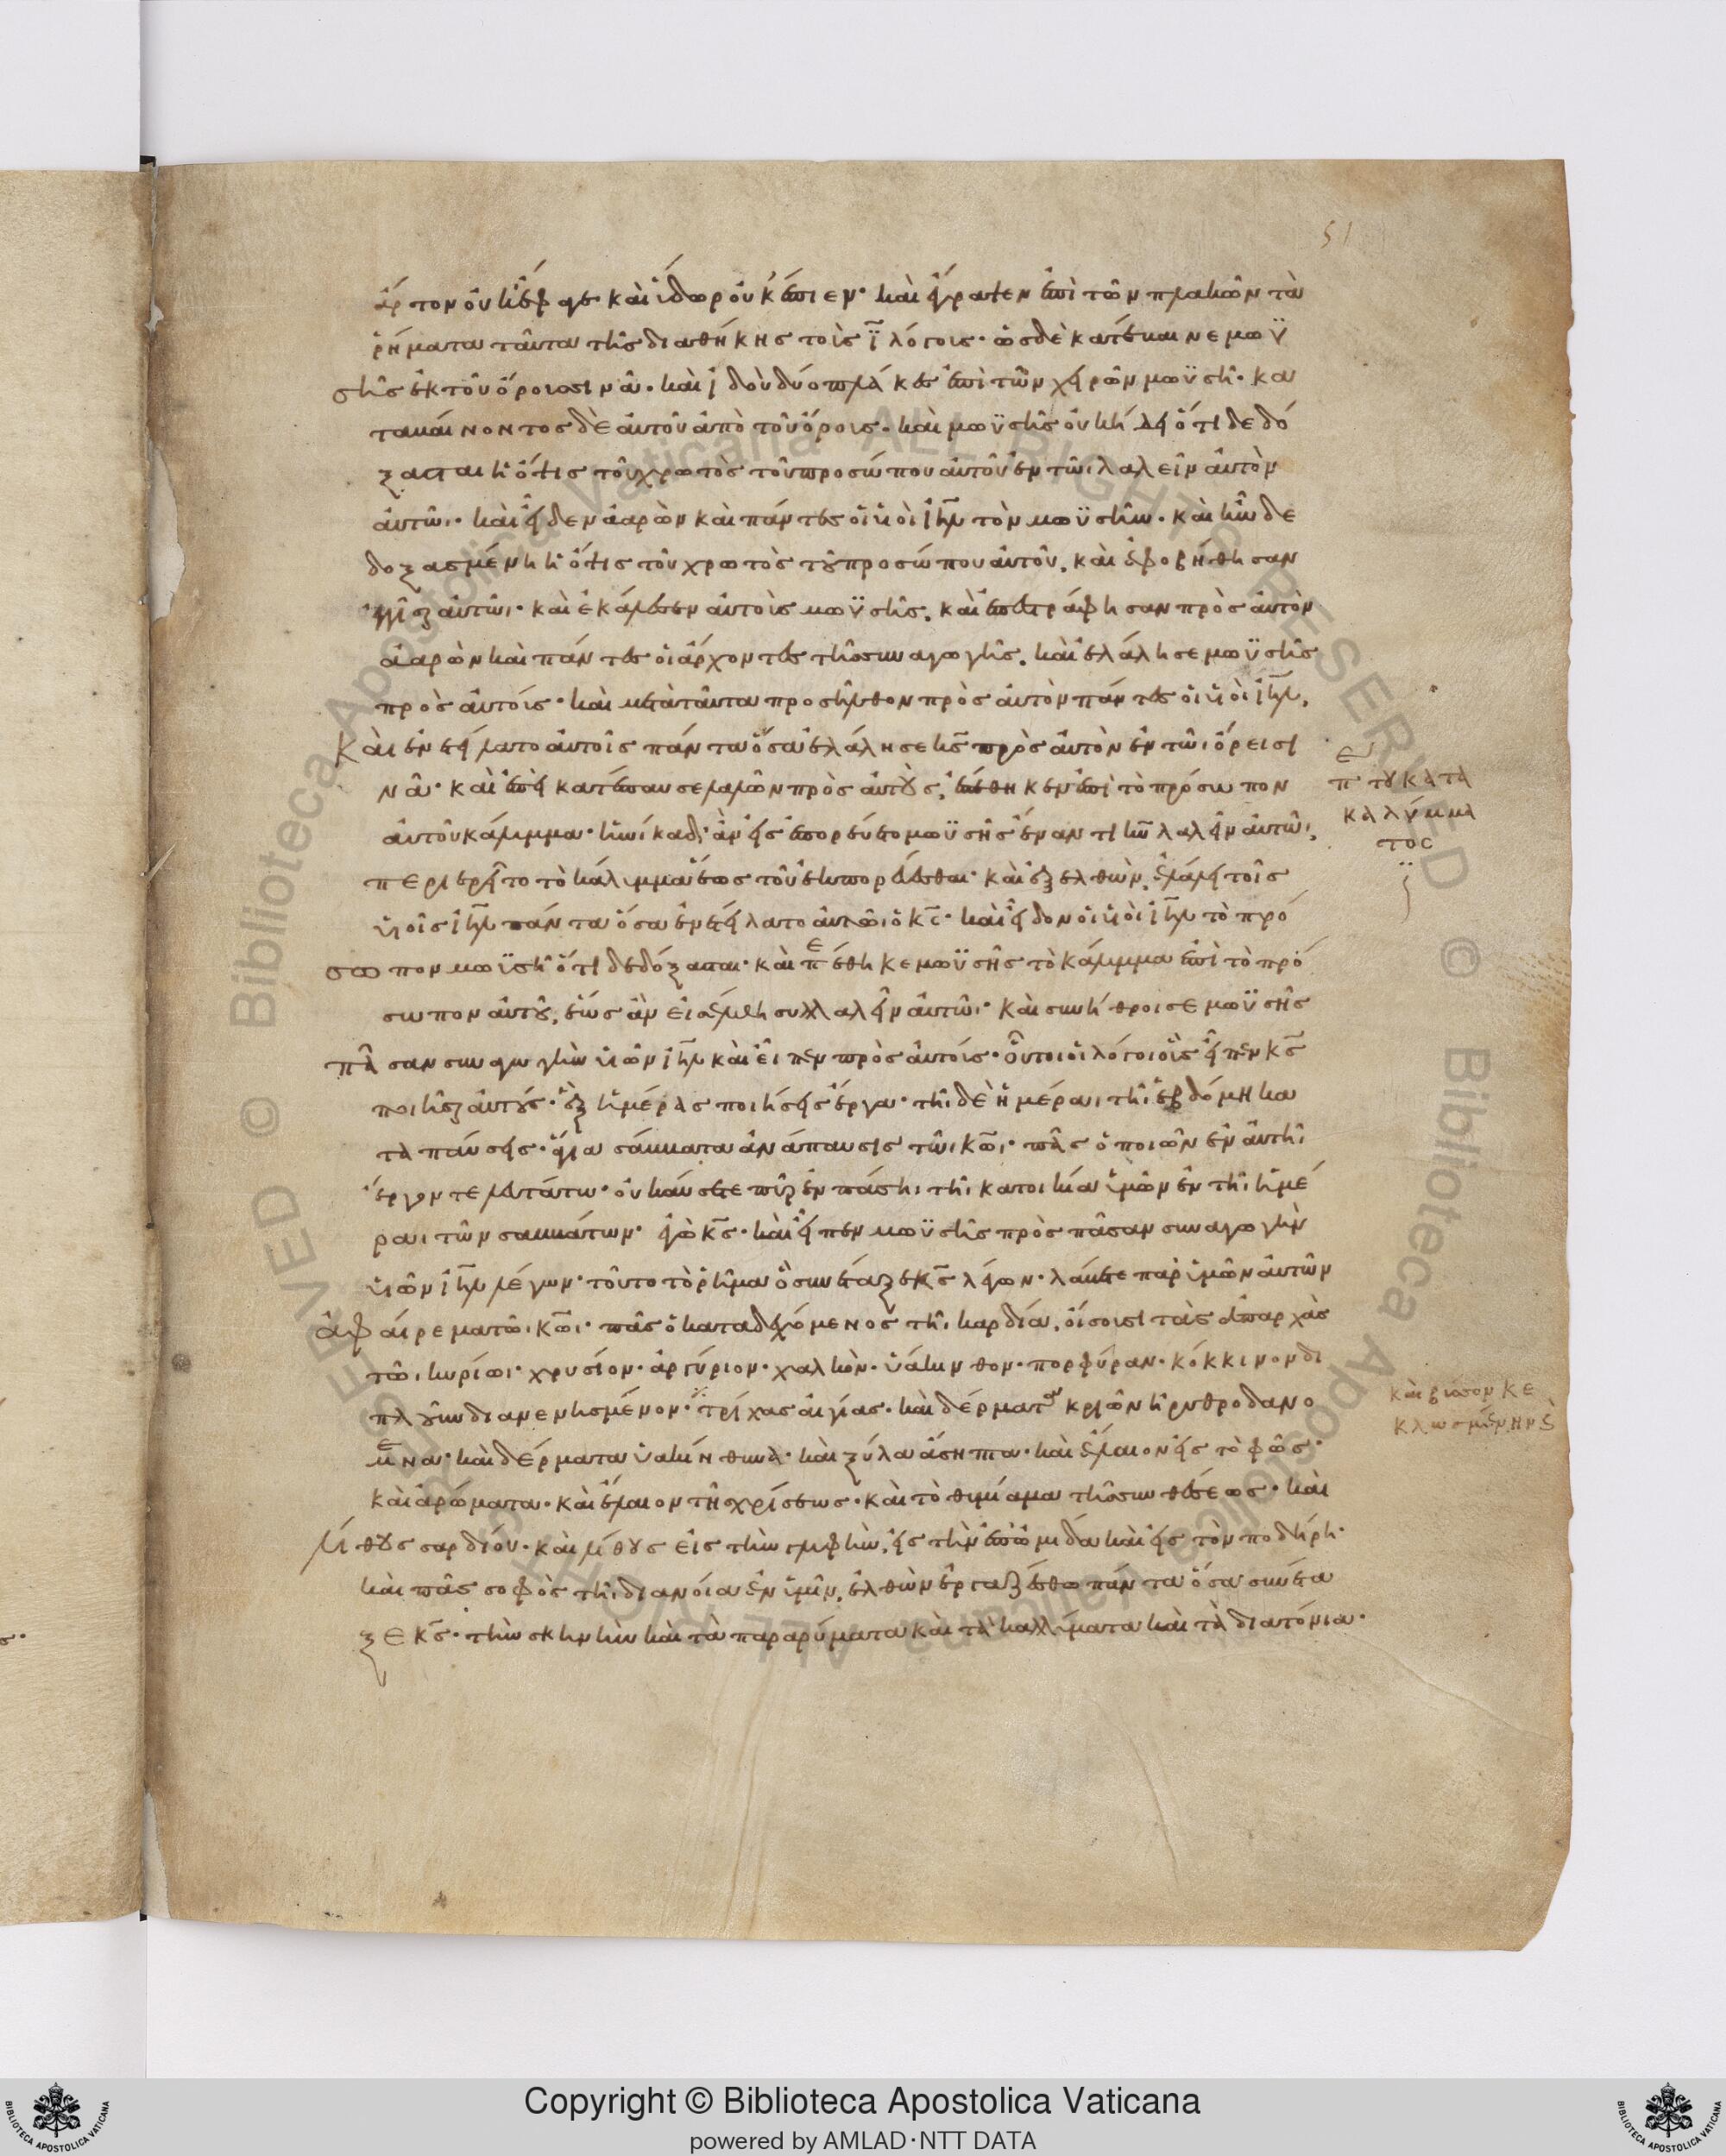 51
ἄρτον οὐκ ἔφαγε καὶ ὕδωρ οὐκ ἔπιεν· καὶ ἔγραψεν ἐπὶ τῶν πλακῶν τὰ
ῥήματα ταῦτα τῆς διαθήκης τοὺς ῑ λόγους· ὡς δὲ κατέβαινε μωϋ
σῆς ἐκ τοῦ ὄρους σινᾶ· καὶ ἰδοὺ δύο πλάκες ἐπὶ τῶν χειρῶν μωϋσῆ· κα
ταβαίνοντος δὲ αὐτοῦ ἀπὸ τοῦ ὄρους· καὶ μωϋσῆς οὐκ ἤδει ὅτι δεδό
ξασται ἡ ὄψις τοῦ χρωτὸς τοῦ προσώπου αὐτοῦ ἐν τῶι λαλεῖν αὐτὸν
αὐτῶι· καὶ εἶδεν ἀαρὼν καὶ πάντες οἱ υἱοὶ ἰηλ τὸν μωϋσῆν· καὶ ἦν δε
δοξασμένη ἡ ὄψις τοῦ χρωτὸς τοῦ προσώπου αὐτοῦ, καὶ ἐφοβήθησαν
ἐγγίσαι αὐτῶι· καὶ ἐκάλεσεν αὐτοὺς μωϋσῆς, καὶ ἐπεστράφησαν πρὸς αὐτὸν
ἀαρὼν καὶ πάντες οἱ ἄρχοντες τῆς συναγωγῆς, καὶ ἐλάλησε μωϋσῆς
πρὸς αὐτούς· καὶ μετὰ ταῦτα προσῆλθον πρὸς αὐτὸν πάντες οἱ υἱοὶ ἰηλ,
Καὶ ἐνετείλατο αὐτοῖς πάντα ὅσα ἐλάλησε κς πρὸς αὐτὸν ἐν τῶι ὄρει σι
νᾶ· καὶ ἐπεὶ κατέπαυσε λαλῶν πρὸς αὐτοὺς, ἐπέθηκεν ἐπὶ τὸ πρόσωπον
αὐτοῦ κάλυμμα· ἡνίκα δ' ἂν εἰσεπορεύετο μωϋσῆς ἔναντι κυ λαλεῖν αὐτῶι,
περιῃρεῖτο τὸ κάλυμμα ἕως τοῦ ἐκπορεύεσθαι· καὶ ἐξελθὼν, ἐλάλει τοῖς
υἱοῖς ἰηλ πάντα ὅσα ἐνετείλατο αὐτῶι ὁ κς· καὶ εἶδον οἱ υἱοὶ ἰηλ τὸ πρό
σωπον μωϋσῆ ὅτι δεδόξασται· καὶ πεέθηκε μωϋσῆς τὸ κάλυμμα ἐπὶ τὸ πρό
σωπον αὐτοῦ, ἕως ἂν εἰσέλθη συλλαλεῖν αὐτῶι· καὶ συνήθροισε μωϋσῆς
πᾶσαν συναγωγὴν υἱῶν ἰηλ καὶ εἶπεν πρὸς αὐτούς· οὗτοι οἱ λόγοι οὓς εἶπεν κς
ποιῆσαι αὐτούς· ἓξ ἡμέρας ποιήσεις ἔργα· τῆι δὲ ἡμέραι τῆι ἑβδόμη κα
ταπαύσεις· ἅγια σάββατα ἀνάπαυσις τῶι κωι· πᾶς ὁ ποιῶν ἐν αὐτῆι
ἔργον τελευτάτω· οὐ καύσετε πῦρ ἐν πάσηι τῆι κατοικία ὑμῶν ἐν τῆι ἡμέ
ραι τῶν σαββάτων· ἐγὼ κς· καὶ εἶπεν μωϋσῆς πρὸς πᾶσαν συναγωγὴν
υἱῶν ἰηλ λέγων· τοῦτο τὸ ῥῆμα ὃ συνέταξε κς λέγων· λάβετε παρ' ὑμῶν αὐτῶν
ἀφαίρεμα τῶι κωι· πᾶς ὁ καταδεχόμενος τῆι καρδία, οἴσουσι τὰς ἀπαρχὰς
τῶι κυρίωι· χρυσίον· ἀργύριον· χαλκὸν· ὑάκινθον· πορφύραν· κόκκινον δι
πλοῦν διανενησμένον· τρίχας αἰγίας· καὶ δέρματα κριῶν ἠρυθροδανω
μενα· καὶ δέρματα ὑακίνθινα· καὶ ξύλα ἄσηπτα· καὶ ἔλαιον εἰς τὸ φῶς·
καὶ ἀρώματα· καὶ ἔλαιον τῆς χρίσεως· καὶ τὸ θυμίαμα τῆς συνθέσεως· καὶ
λίθους σαρδίου· καὶ λίθους εἰς τὴν γλυφὴν, εἰς τὴν ἐπωμίδα καὶ εἰς τὸν ποδήρη·
καὶ πᾶς σοφὸς τῆι διανοία ἐν ὑμῖν, ἐλθὼν ἐργαζέσθω πάντα ὅσα συνέτα
ξε κς· τὴν σκηνὴν καὶ τὰ παραρύματα καὶ τὰ καλύματα καὶ τὰ διατόνια·
πε τοῦ κατα
καλύμμα
τος
καὶ βύσσον κε
κλωσμένην
Copyright © Biblioteca Apostolica Vaticana
powered by AMLAD·NTT DATA